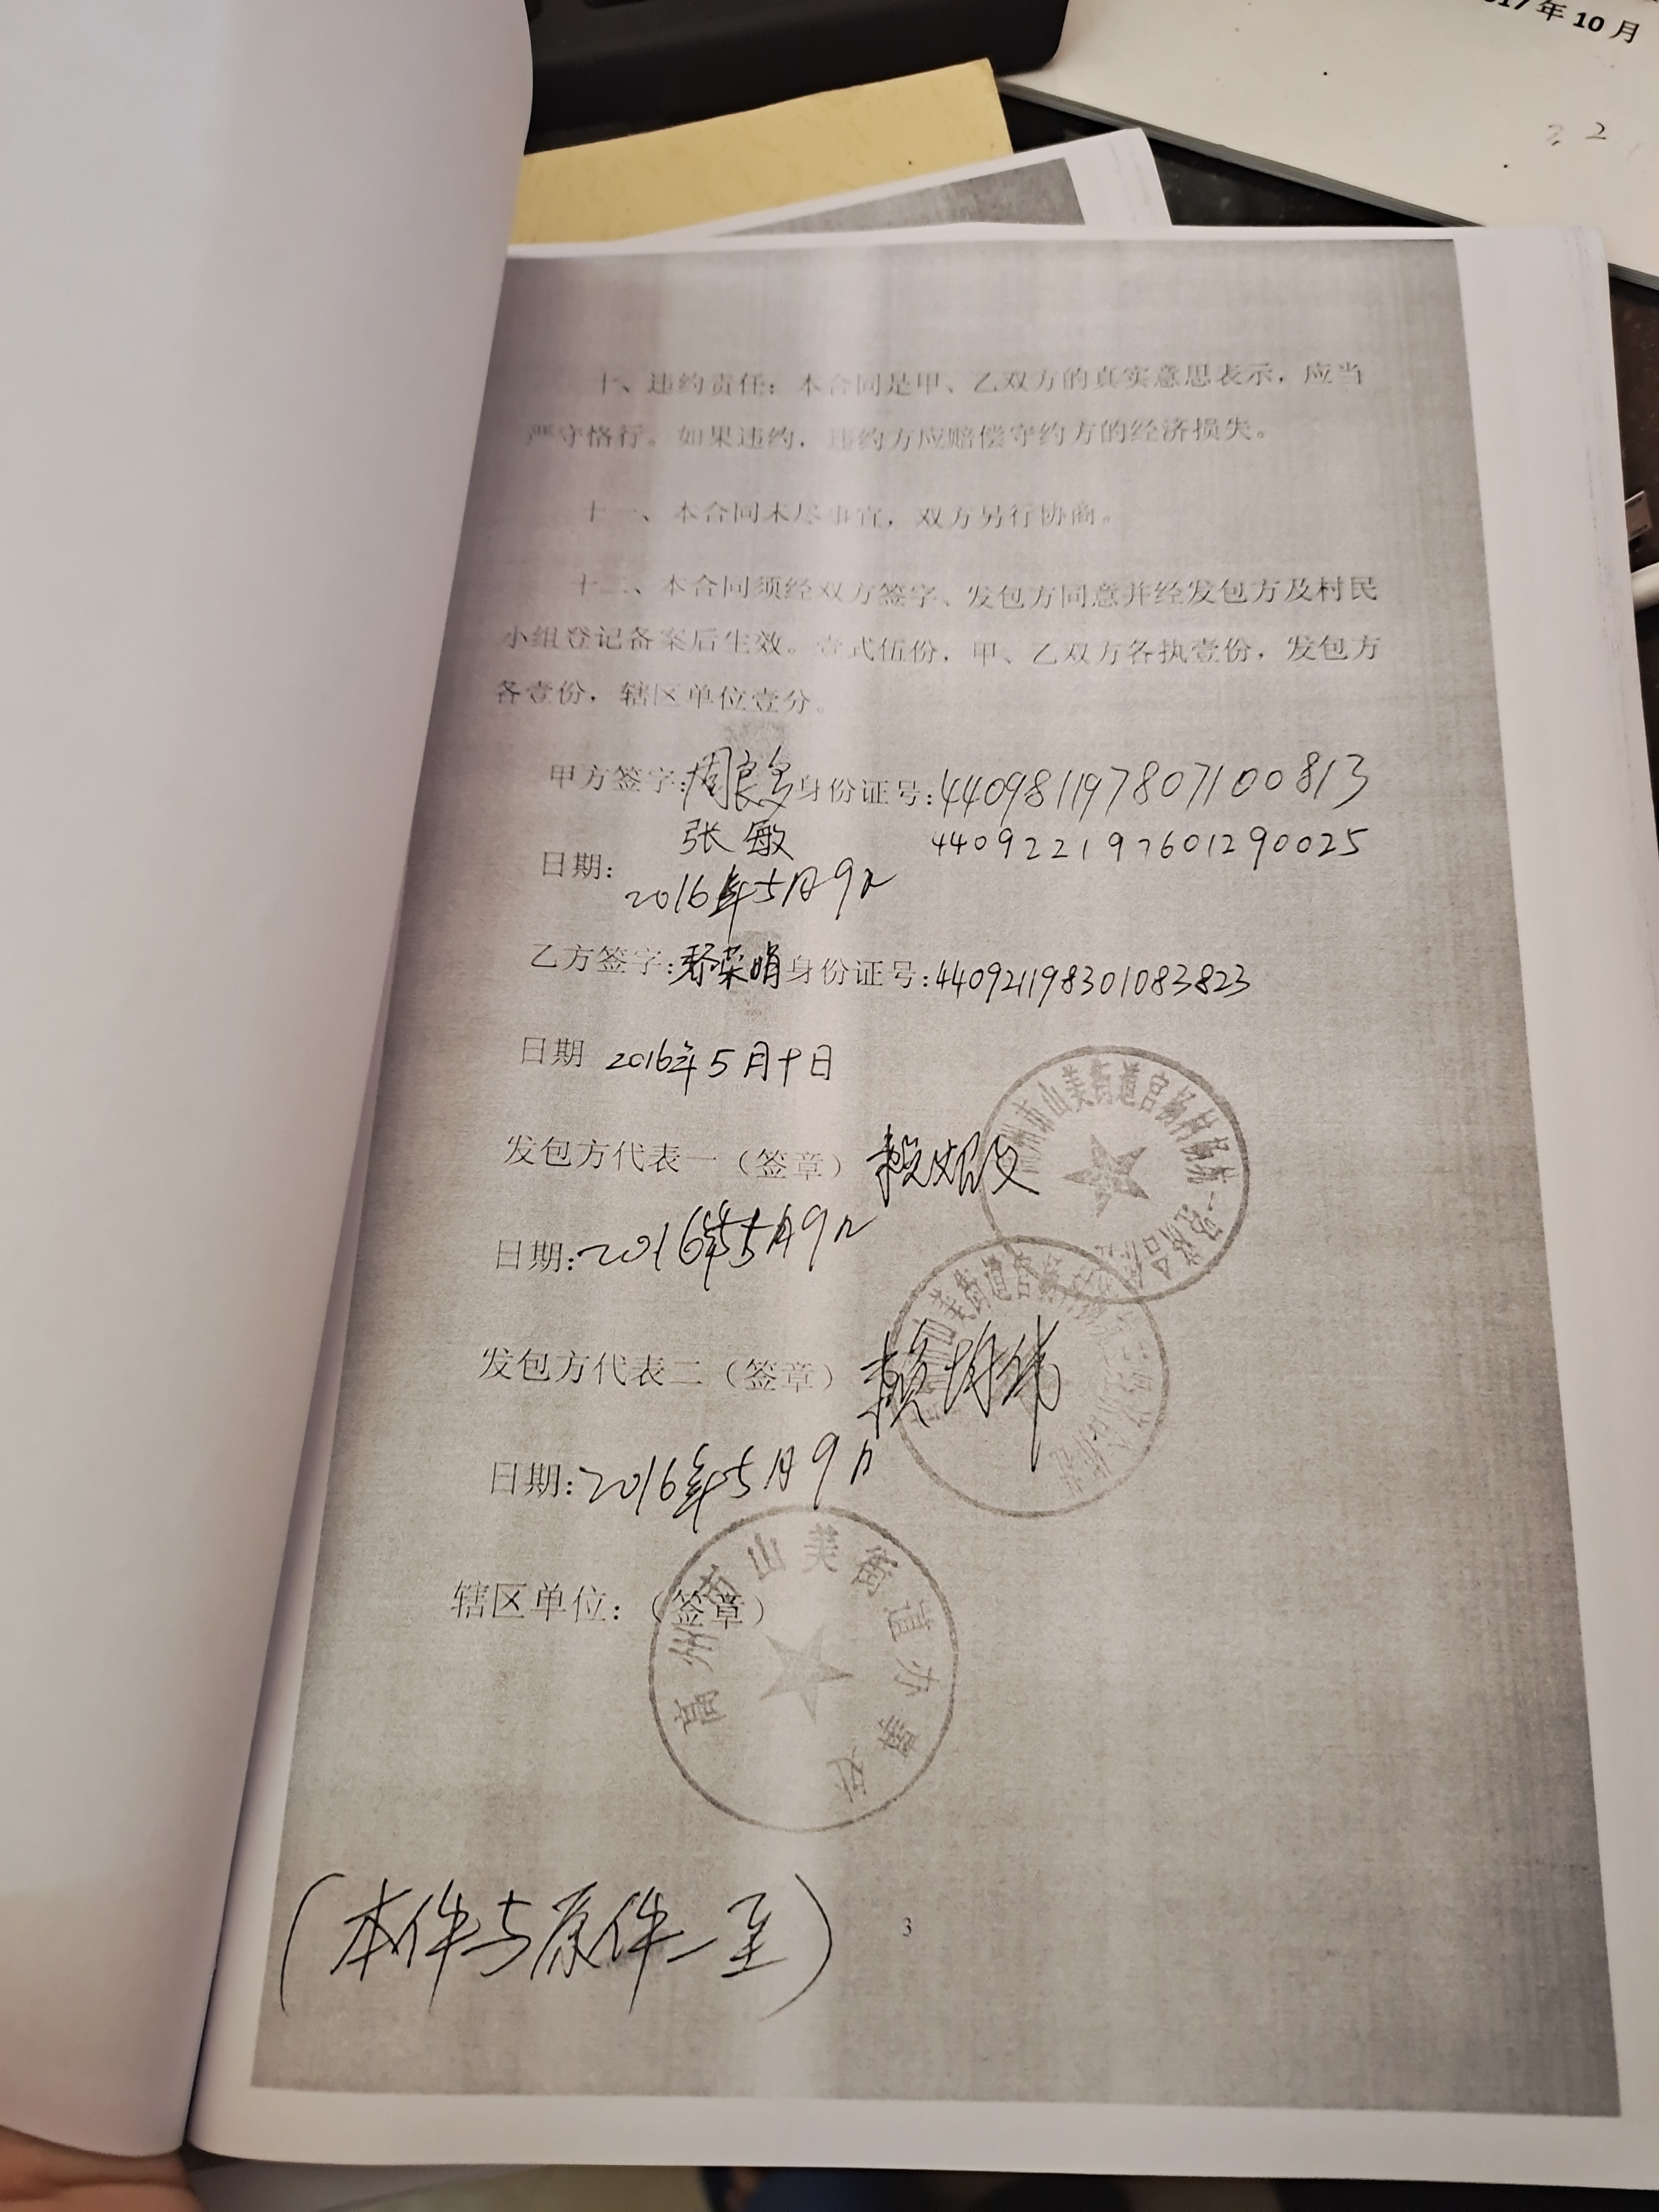 017年10月
十、违约责任：本合同是甲、乙双方的真实意思表示，应当
严守恪行。如果违约，违约方应赔偿守约方的经济损失。
十一、本合同未尽事宜，双方另行协商。
十二、本合同须经双方签字、发包方同意并经发包方及村民
小组登记备案后生效。壹式伍份，甲、乙双方各执壹份，发包方
各壹份，辖区单位壹分。
甲方签字：周良多 身份证号：440981197807100813
张敏 440922197601290025
日期：2016年5月9日
乙方签字：荣娟 身份证号：440921198301083823
日期 2016年5月十日
发包方代表一（签章）赖
州市山美街道官杨村杨
日期：2016年5月9日
发包方代表二（签章）赖明伟
美街道官
日期：2016年5月9日
辖区单位：（签章）
高州市山美街道办事处
3
（本件与原件一至）